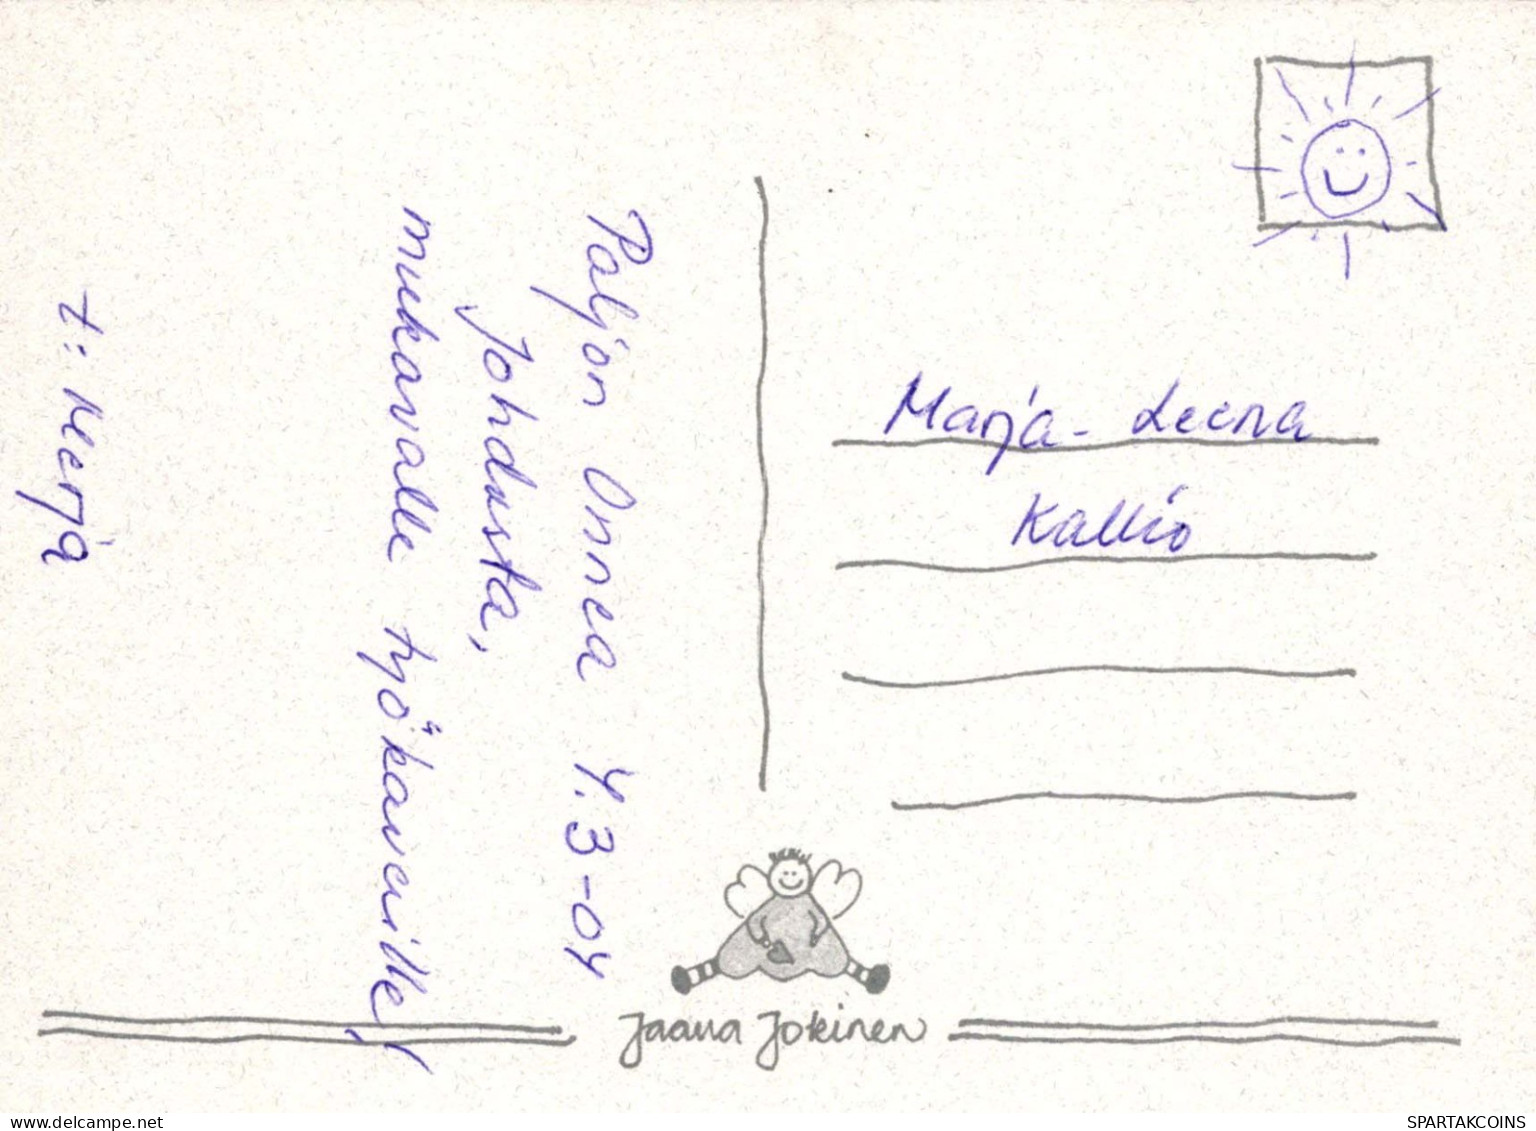 Paljon Onnea 4.3-04
Johdusta,
mukavalle työkaverille!
t: Merja
Marja-Leena
Kallio
Jaana Jokinen
www.delcampe.net
SPARTAKCOINS